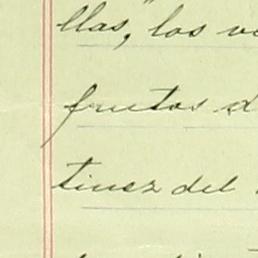 llas, los
frutos d
tinez del